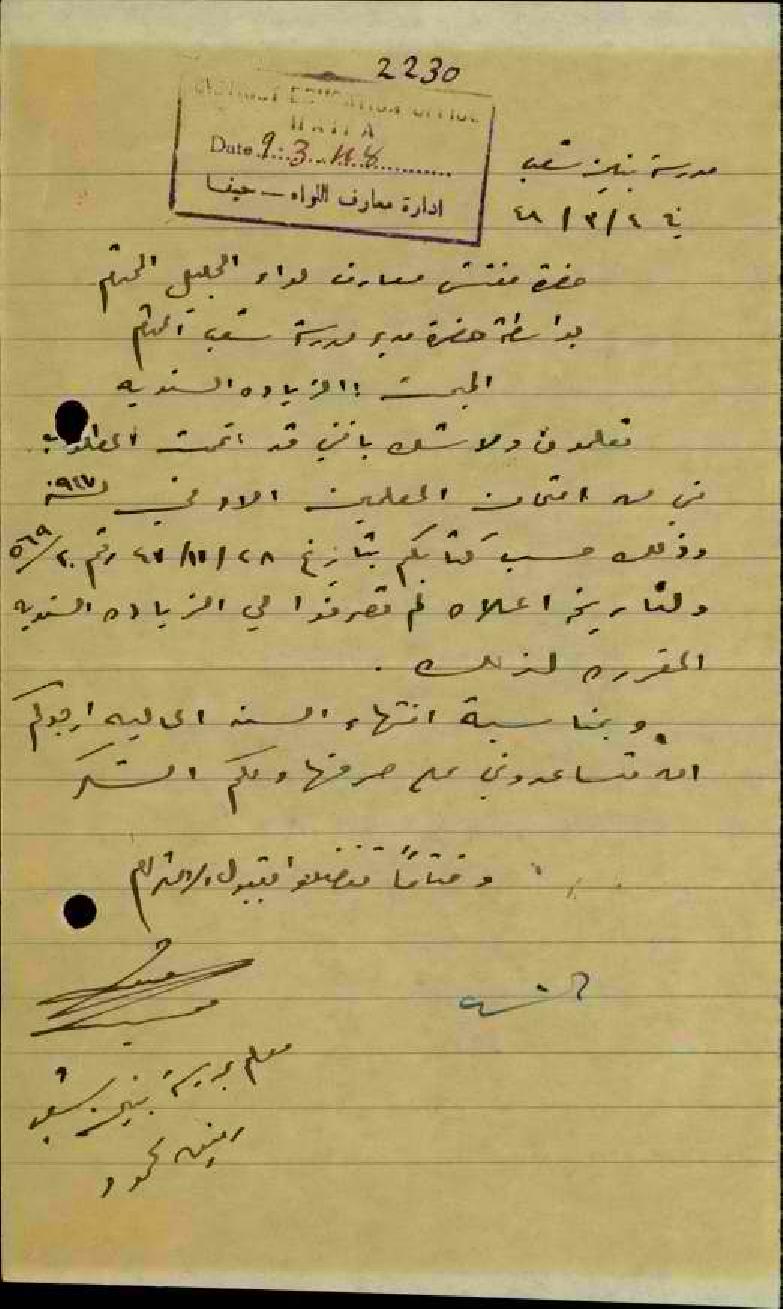 2230
DISTRICT EDUCATION OFFICE
HAIFA
Date 9.3.48
ادارة معارف اللواء – حيفا
مدرسة بنين شعب
في ٤ / ٣ / ٤٨
حضرة مفتش معارف لواء الجليل المحترم
بواسطة حضرة مدير مدرسة شعب المحترم
المبحث : الزياده السنويه
تعلمون ولا شك بانني قد اتممت المطلوب
مني من امتحان المعلمين الادنى لسنة ٩٤٧
وذلك حسب كتابكم بتاريخ ٢٨ / ١١ / ٤٧ رقم ٢٠/٥٦٩
ولتاريخ اعلاه لم تصرفوا لي الزياده السنويه
المقرره لذلك .
وبمناسبة انتهاء السنه الماليه ارجوكم
ان تساعدوني على صرفها ولكم الشكر
وختاماً تفضلوا بقبول الاحترام
معلم بمدرسة بنين شعب
محمود